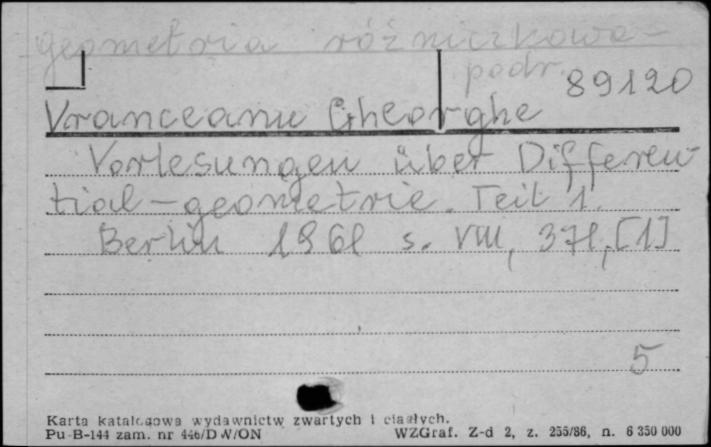 geometria różniczkowa -
podr.
89120
Vranceanu Gheorghe
Vorlesungen über Differen-
tial-geometrie. Teil 1.
Berlin 1961 s. VIII, 371, [1]
5
Karta katalogowa wydawnictw zwartych i ciągłych.
Pu-B-144 zam. nr 446/D W/ON WZGraf. Z-d 2, z. 255/86, n. 6 350 000